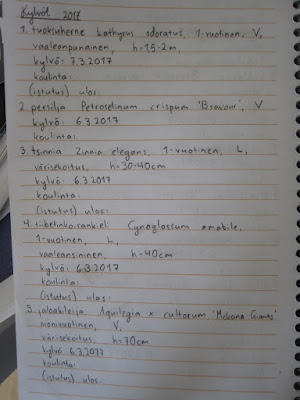 Kylvöt 2017
1. tuoksuherne Lathyrus odoratus, 1-vuotinen, V,
vaaleanpunainen, h=1,5-2m,
kylvö: 7.3.2017
koulinta:
(istutus) ulos:
2. persilja Petroselinum crispum 'Bravour', V
kylvö: 6.3.2017
koulinta:
3. tsinnia Zinnia elegans, 1-vuotinen, L,
värisekoitus, h=30-40cm
kylvö: 6.3.2017
koulinta:
(istutus) ulos:
4. tiibetinkoirankieli Cynoglossum amabile,
1-vuotinen, L,
vaaleansininen, h=40cm
kylvö: 6.3.2017
koulinta:
(istutus) ulos:
5. jaloakileija Aquilegia x cultorum 'McKana Giants'
monivuotinen, V,
värisekoitus, h=70cm
kylvö 6.3.2017
koulinta:
(istutus) ulos: